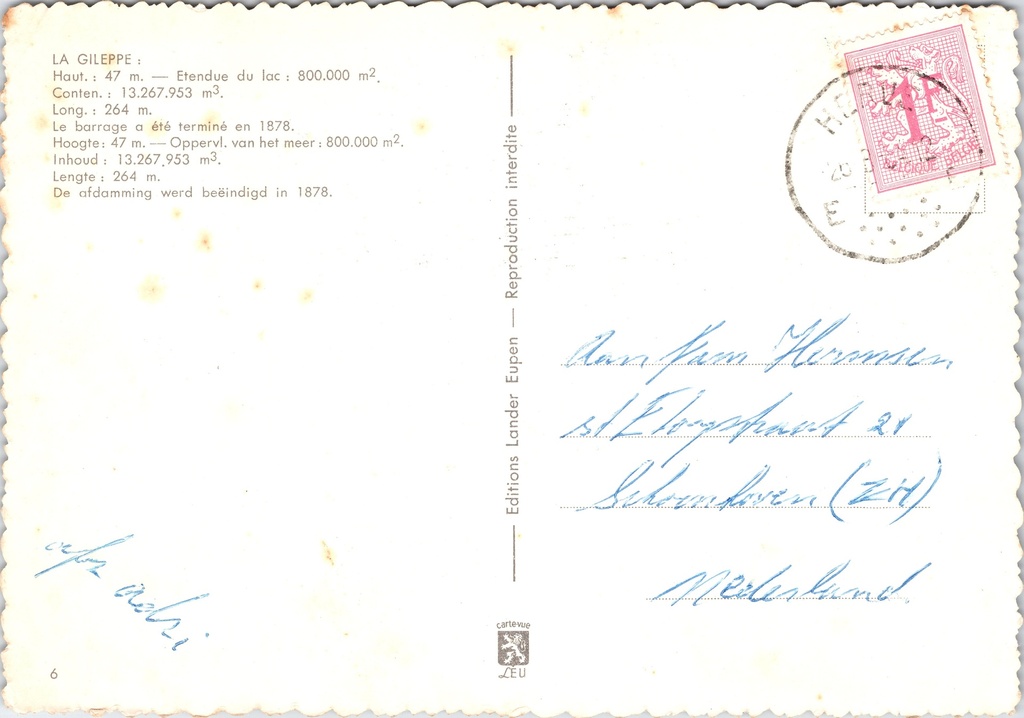 LA GILEPPE :
Haut. : 47 m. — Etendue du lac : 800.000 m².
Conten. : 13.267.953 m³.
Long. : 264 m.
Le barrage a été terminé en 1878.
Hoogte : 47 m. — Oppervl. van het meer : 800.000 m².
Inhoud : 13.267,953 m³.
Lengte : 264 m.
De afdamming werd beëindigd in 1878.
Editions Lander Eupen — Reproduction interdite
1F
BELGIQUE BELGIE
Aan Fam Hermsen
st Eloystraat 21
Schoonhoven (ZH)
Nederland.
afz
6
cartevue
LEU